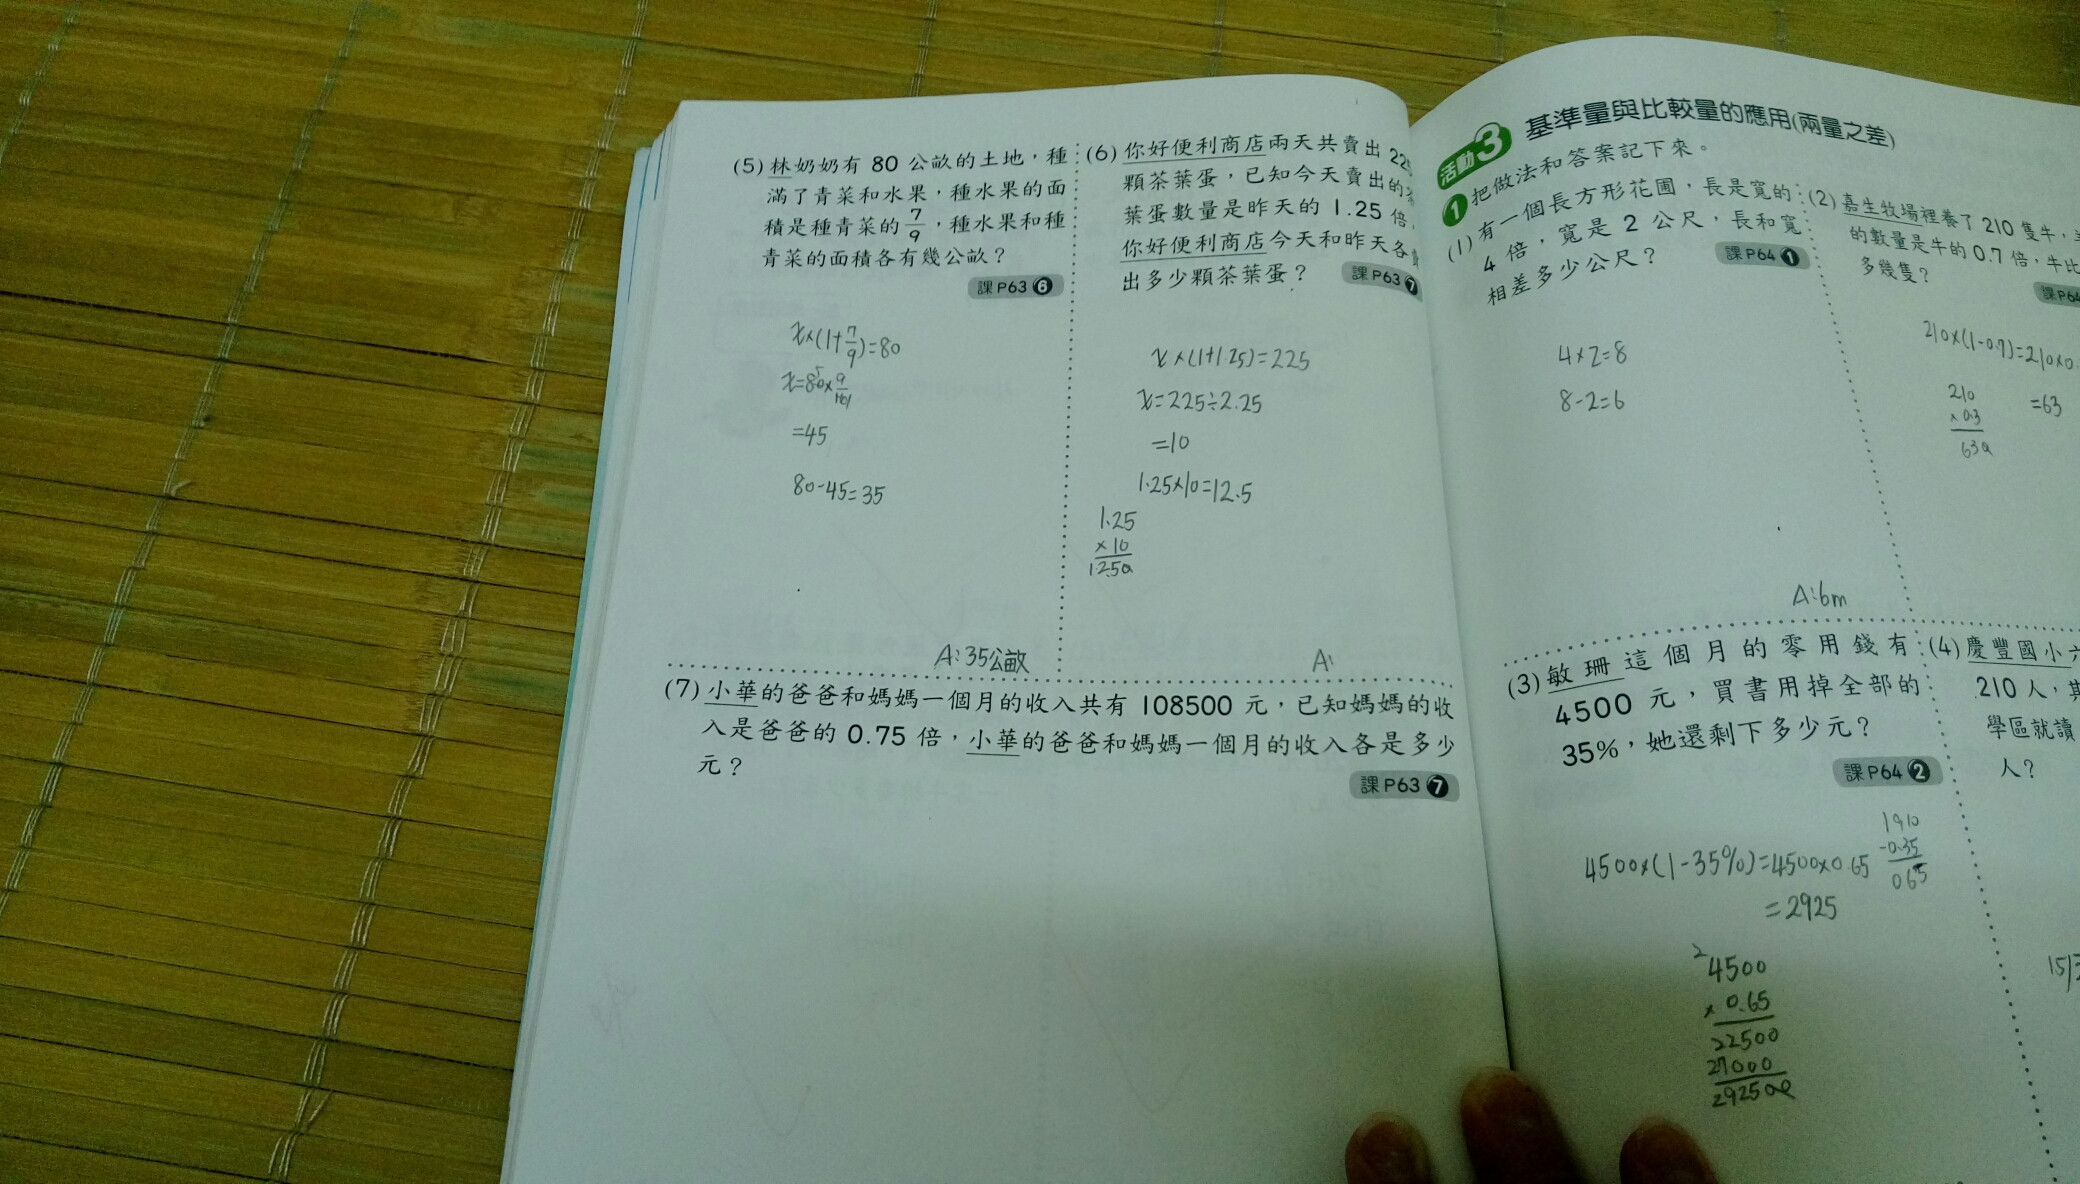 (5) 林奶奶有 80 公畝的土地，種
滿了青菜和水果，種水果的面
積是種青菜的 7/9，種水果和種
青菜的面積各有幾公畝？
課P63 6
x×(1+7/9)=80
=45
80-45=35
A:35公畝
(6) 你好便利商店兩天共賣出
顆茶葉蛋，已知今天賣出的
葉蛋數量是昨天的 1.25 倍，
你好便利商店今天和昨天各
出多少顆茶葉蛋？
課P63 7
x×(1+1.25)=225
x=225÷2.25
=10
1.25×10=12.5
1.25
×10
A:
(7) 小華的爸爸和媽媽一個月的收入共有 108500 元，已知媽媽的收
入是爸爸的 0.75 倍，小華的爸爸和媽媽一個月的收入各是多少
元？
課P63 7
活動3 基準量與比較量的應用(兩量之差)
1 把做法和答案記下來。
(1) 有一個長方形花圃，長是寬的
4 倍，寬是 2 公尺，長和寬
相差多少公尺？
課P64 1
4×2=8
8-2=6
A:6m
(2) 嘉生牧場裡養了 210 隻牛，
的數量是牛的 0.7 倍，牛比
多幾隻？
課P64
210×(1-0.7)=210×0.
=63
210
×0.3
(3) 敏珊這個月的零用錢有
4500 元，買書用掉全部的
35%，她還剩下多少元？
課P64 2
4500×(1-35%)=4500×0.65
=2925
-0.35
4500
×0.65
22500
27000
(4) 慶豐國小六
210 人，其
學區就讀
人？